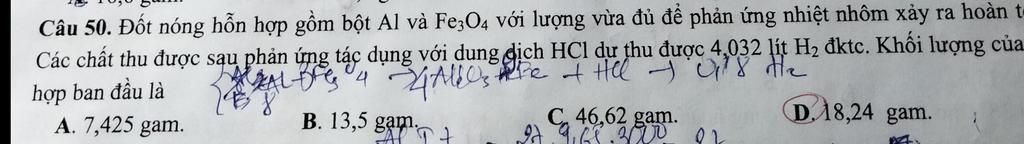 Câu 50. Đốt nóng hỗn hợp gồm bột Al và Fe3O4 với lượng vừa đủ để phản ứng nhiệt nhôm xảy ra hoàn t
Các chất thu được sau phản ứng tác dụng với dung dịch HCl dư thu được 4,032 lít H2 đktc. Khối lượng của
hợp ban đầu là
A. 7,425 gam. B. 13,5 gam. C. 46,62 gam. D. 18,24 gam.